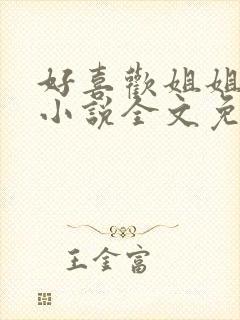 好喜歡姐姐
小說全文免
王金富